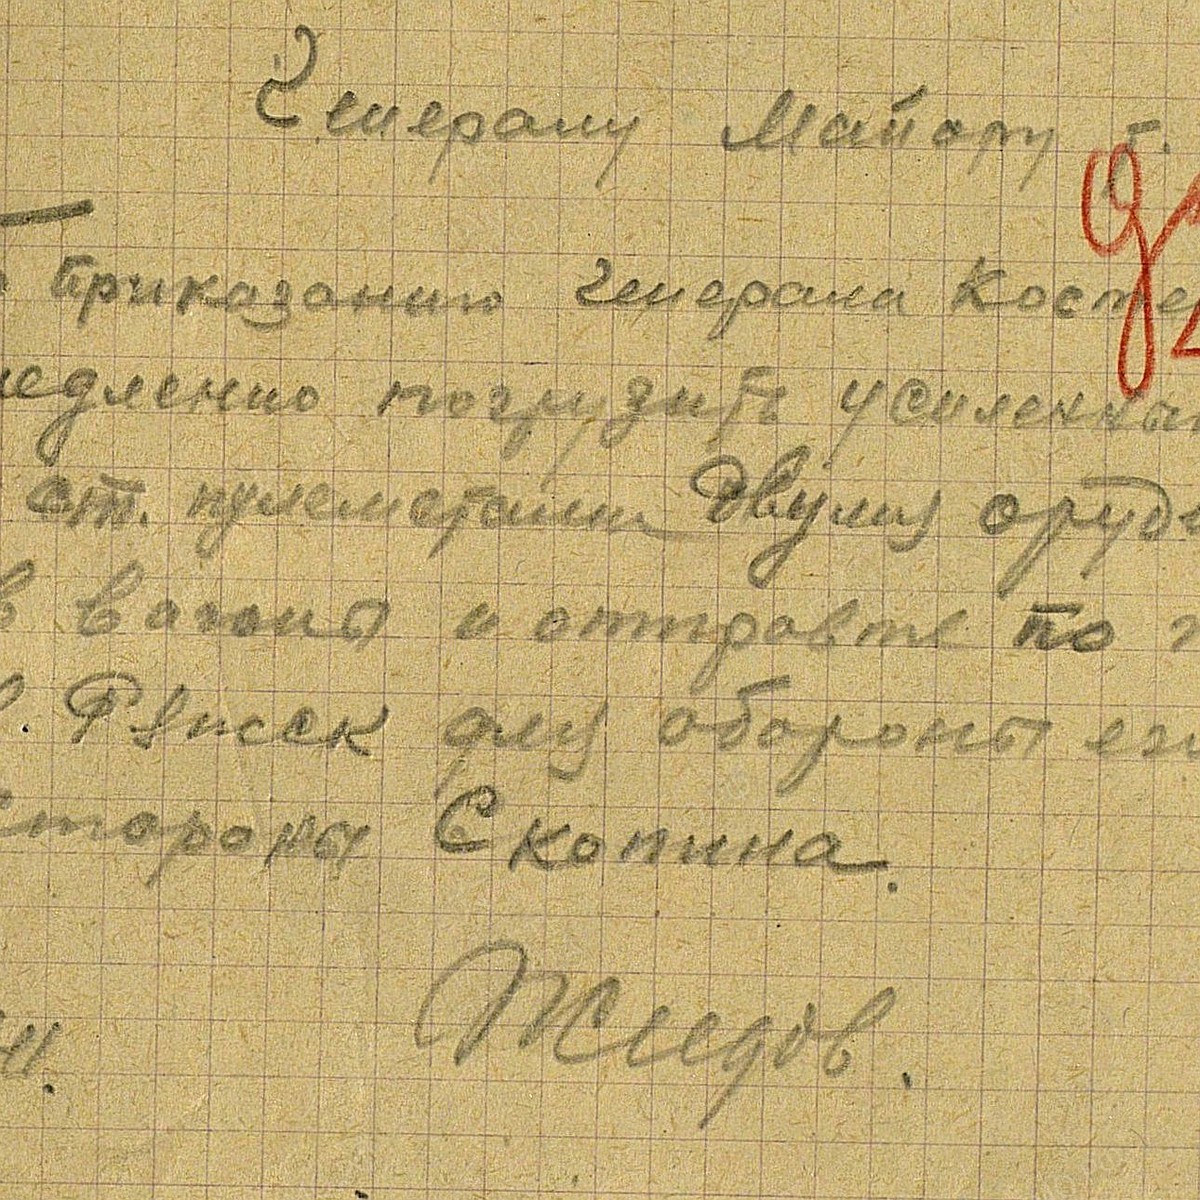 Генералу Майору т.
приказанию генерала Косте
медленно погрузить усиленный
ст. пулеметами двумя оруд
в вагоны и отправте по
в. Ряжск для обороны его
стороны Скопина.
41.
Жидов.